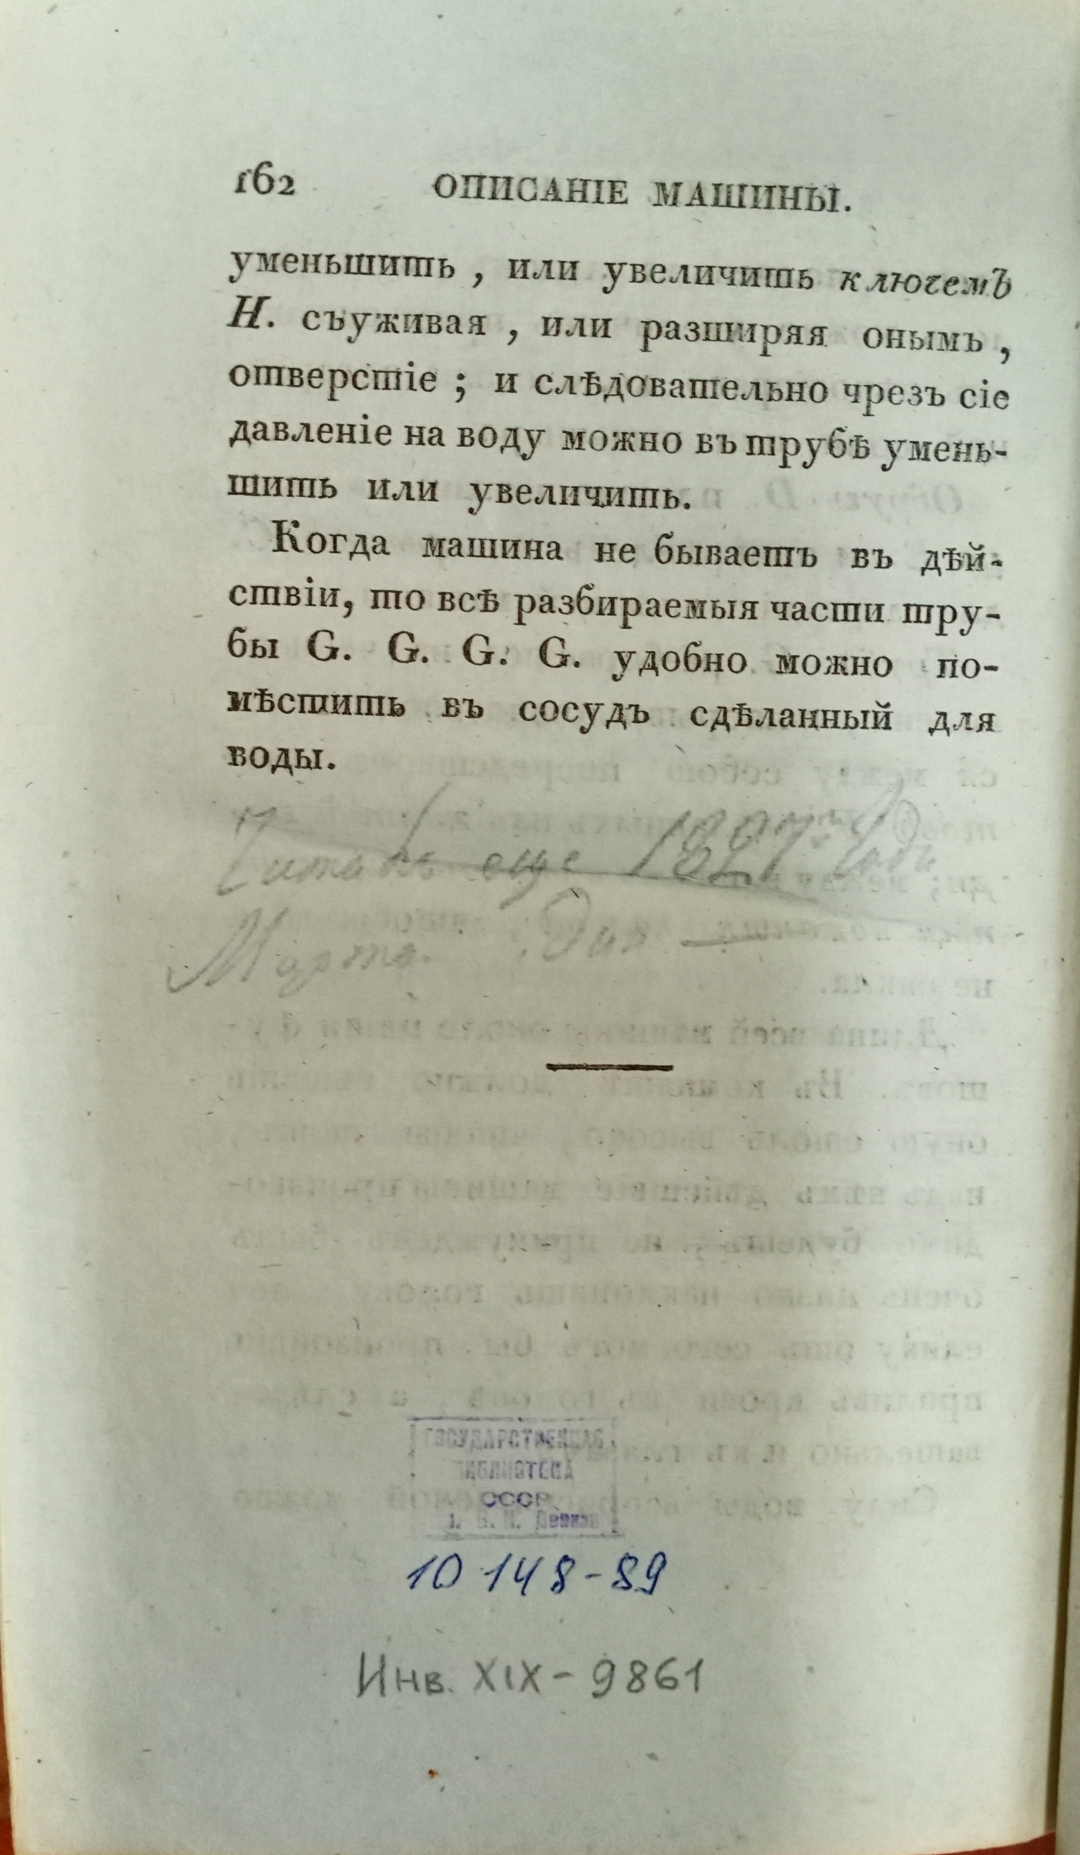 162 ОПИСАНІЕ МАШИНЫ.
уменьшить , или увеличить ключемъ
Н. съуживая , или разширяя онымъ ,
отверстіе ; и слѣдовательно чрезъ сіе
давленіе на воду можно въ трубѣ умень-
шить или увеличить.
Когда машина не бываетъ въ дѣй-
ствіи, то всѣ разбираемыя части тру-
бы G. G. G. G. удобно можно по-
мѣстить въ сосудъ сдѣланный для
воды.
еще 1827
Марта. Дня
ГОСУДАРСТВЕННАЯ
БИБЛИОТЕКА
СССР
В. И. Ленина
10 148-89
Инв. XIX-9861